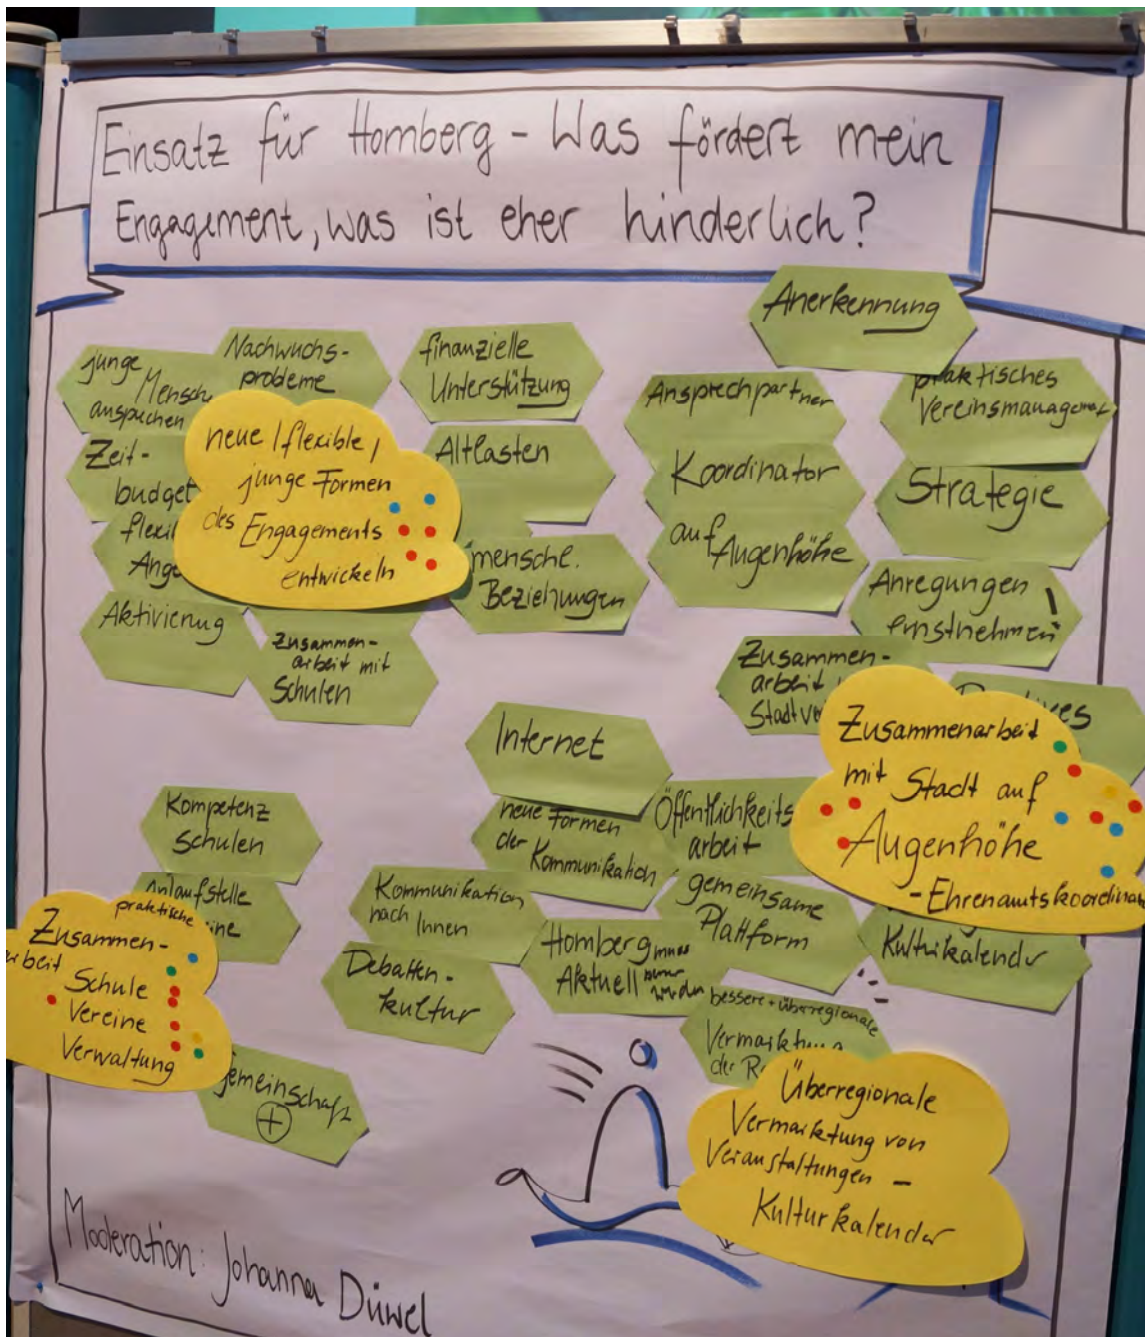 Einsatz für Homberg - Was fördert mein
Engagement, was ist eher hinderlich?
Anerkennung
junge
Mensch
ansprechen
Nachwuchs-
probleme
finanzielle
Unterstützung
Ansprechpartner
praktisches
Vereinsmanagement
Zeit-
budget
neue / flexible /
junge Formen
des Engagements
entwickeln
Altlasten
Koordinator
Strategie
auf Augenhöhe
menschl.
Beziehungen
Anregungen
ernstnehmen!
Aktivierung
Zusammen-
arbeit mit
Schulen
Zusammen-
arbeit
Zusammenarbeit
mit Stadt auf
Augenhöhe
- Ehrenamtskoordinator
Internet
Kompetenz
Schulen
neue Formen
der Kommunikation
Öffentlichkeits
arbeit
Anlaufstelle
Kommunikation
nach Innen
gemeinsame
Plattform
praktische
Zusammen-
arbeit
Schule
Vereine
Verwaltung
Debatten-
kultur
Homberg muss
Aktuell
werden
Kulturkalender
bessere + überregionale
Vermarktung
der
gemeinschaft
+
Überregionale
Vermarktung von
Veranstaltungen -
Kulturkalender
Moderation: Johanna Düwel